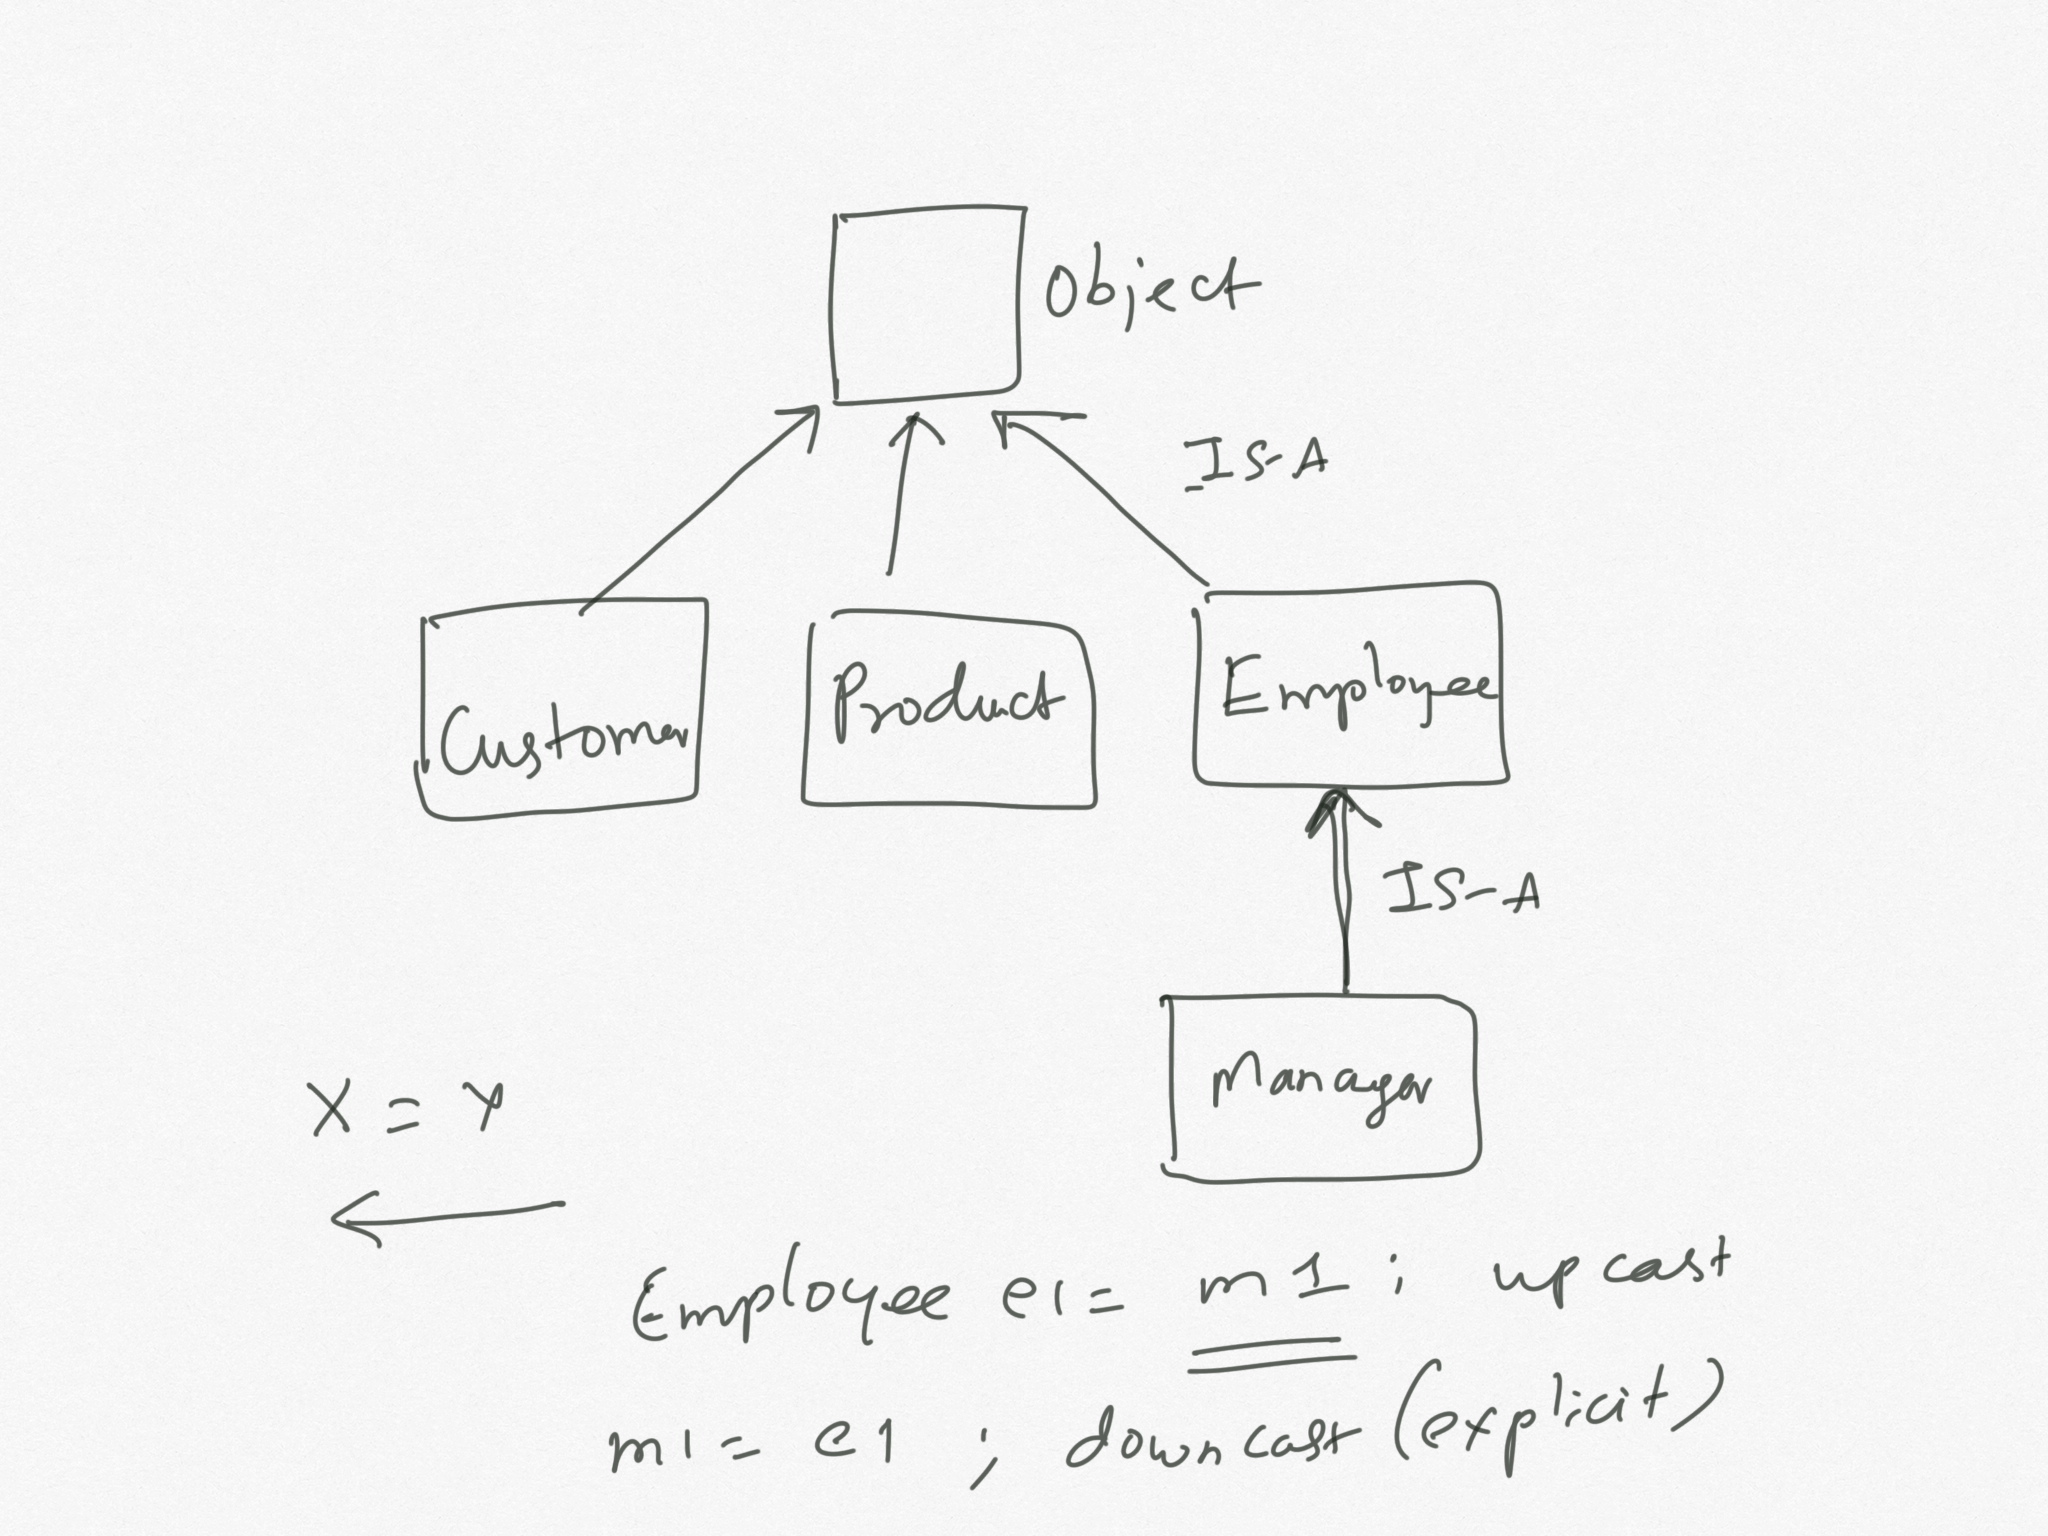 Object
IS-A
Customer
Product
Employee
IS-A
Manager
X = Y
Employee e1 = m1 ; upcast
m1 = e1 ; downcast (explicit)